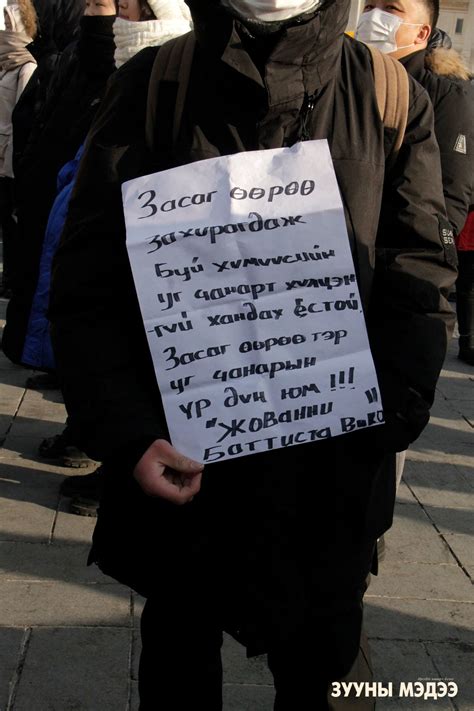 Засаг өөрөө
захирагдаж
Буй хүмүүсийн
уг чанарт хүлцэн
-гүй хандах ёстой.
Засаг өөрөө тэр
уг чанарын
үр дүн юм !!!
"Жованни "
Баттиста Вико
ЗУУНЫ МЭДЭЭ